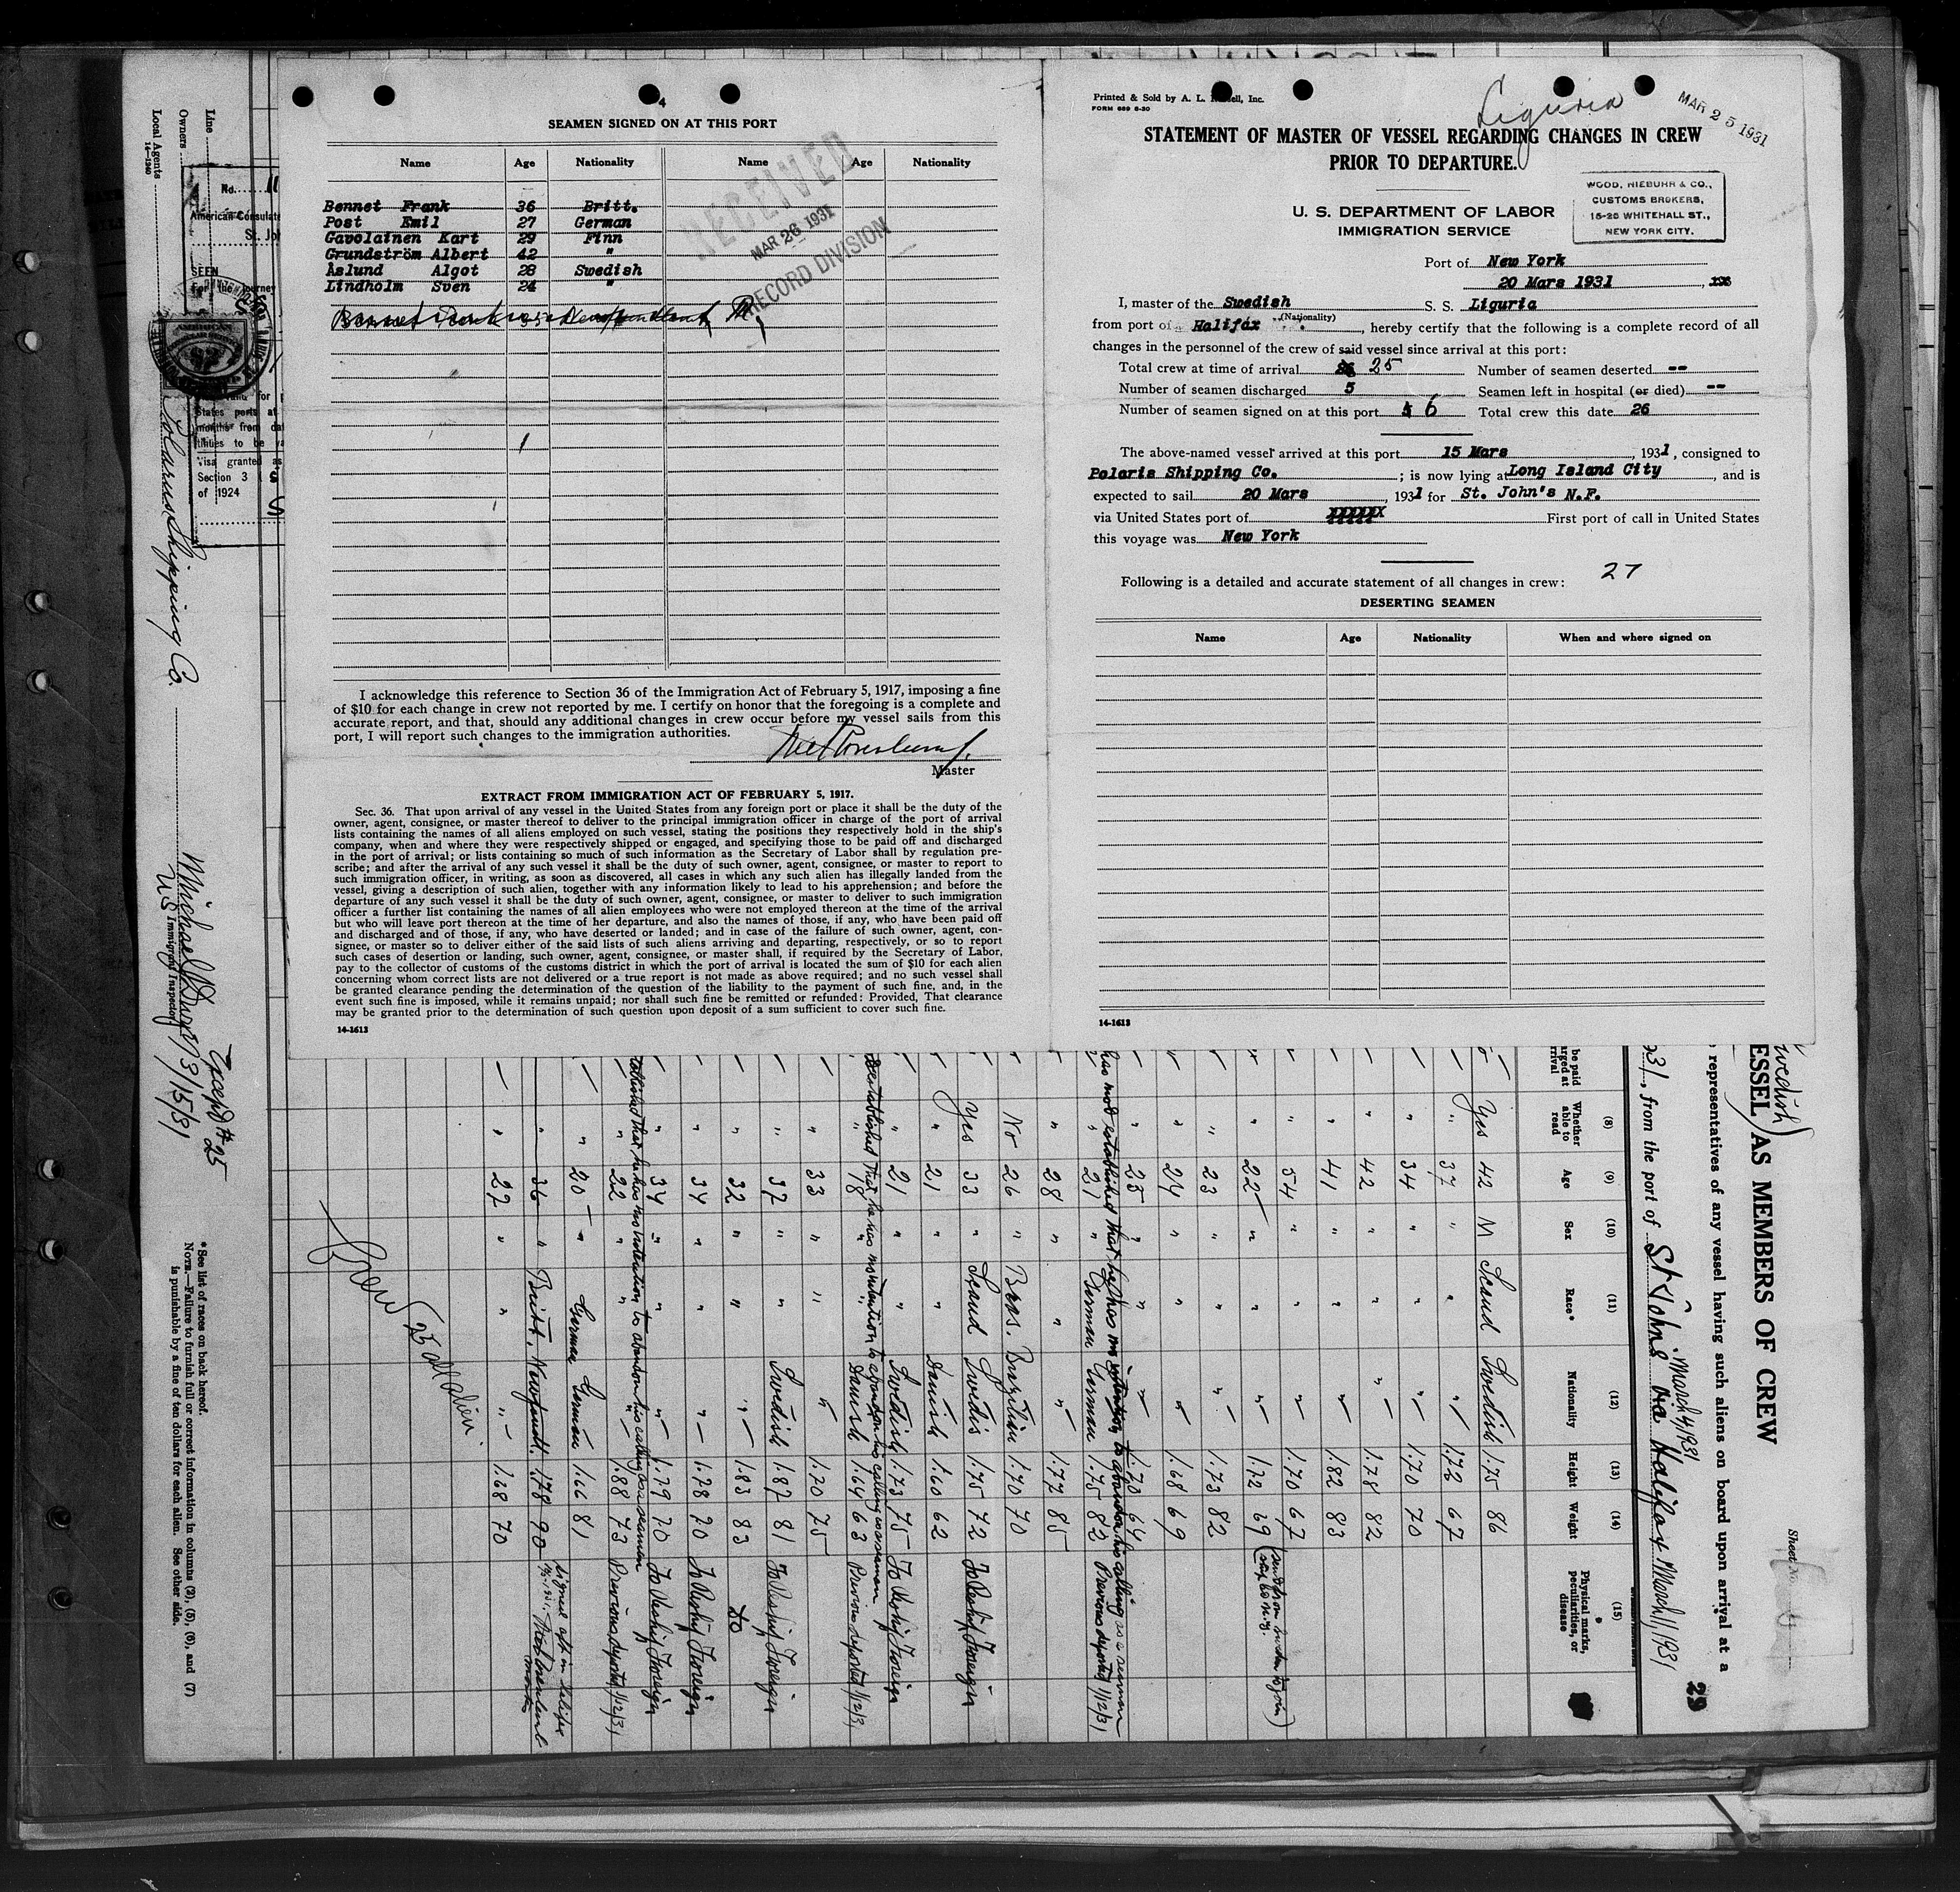 4
SEAMEN SIGNED ON AT THIS PORT
Name Age Nationality Name Age Nationality
Bennet Frank 36 Britt.
Post Emil 27 German
Gavolainen Kart 29 Finn
Grundström Albert 42 "
Åslund Algot 28 Swedish
Lindholm Sven 24 "
RECEIVED
MAR 26 1931
RECORD DIVISION
I acknowledge this reference to Section 36 of the Immigration Act of February 5, 1917, imposing a fine
of $10 for each change in crew not reported by me. I certify on honor that the foregoing is a complete and
accurate report, and that, should any additional changes in crew occur before my vessel sails from this
port, I will report such changes to the immigration authorities.
Master
EXTRACT FROM IMMIGRATION ACT OF FEBRUARY 5, 1917.
Sec. 36. That upon arrival of any vessel in the United States from any foreign port or place it shall be the duty of the
owner, agent, consignee, or master thereof to deliver to the principal immigration officer in charge of the port of arrival
lists containing the names of all aliens employed on such vessel, stating the positions they respectively hold in the ship's
company, when and where they were respectively shipped or engaged, and specifying those to be paid off and discharged
in the port of arrival; or lists containing so much of such information as the Secretary of Labor shall by regulation pre-
scribe; and after the arrival of any such vessel it shall be the duty of such owner, agent, consignee, or master to report to
such immigration officer, in writing, as soon as discovered, all cases in which any such alien has illegally landed from the
vessel, giving a description of such alien, together with any information likely to lead to his apprehension; and before the
departure of any such vessel it shall be the duty of such owner, agent, consignee, or master to deliver to such immigration
officer a further list containing the names of all alien employees who were not employed thereon at the time of the arrival
but who will leave port thereon at the time of her departure, and also the names of those, if any, who have been paid off
and discharged and of those, if any, who have deserted or landed; and in case of the failure of such owner, agent, con-
signee, or master so to deliver either of the said lists of such aliens arriving and departing, respectively, or so to report
such cases of desertion or landing, such owner, agent, consignee, or master shall, if required by the Secretary of Labor,
pay to the collector of customs of the customs district in which the port of arrival is located the sum of $10 for each alien
concerning whom correct lists are not delivered or a true report is not made as above required; and no such vessel shall
be granted clearance pending the determination of the question of the liability to the payment of such fine, and, in the
event such fine is imposed, while it remains unpaid; nor shall such fine be remitted or refunded: Provided, That clearance
may be granted prior to the determination of such question upon deposit of a sum sufficient to cover such fine.
14-1613
Printed & Sold by A. L. ell, Inc.
FORM 689 6-30
Liguria
MAR 25 1931
STATEMENT OF MASTER OF VESSEL REGARDING CHANGES IN CREW
PRIOR TO DEPARTURE.
U. S. DEPARTMENT OF LABOR
IMMIGRATION SERVICE
WOOD, NIEBUHR & CO.,
CUSTOMS BROKERS,
15-25 WHITEHALL ST.,
NEW YORK CITY.
Port of New York
20 Mars 1931, 193
I, master of the Swedish S. S. Liguria
(Nationality)
from port of Halifax, hereby certify that the following is a complete record of all
changes in the personnel of the crew of said vessel since arrival at this port:
Total crew at time of arrival 25 Number of seamen deserted --
Number of seamen discharged 5 Seamen left in hospital (or died) --
Number of seamen signed on at this port 6 Total crew this date 26
The above-named vessel arrived at this port 15 Mars, 1931, consigned to
Polaris Shipping Co. ; is now lying at Long Island City, and is
expected to sail 20 Mars, 1931 for St. John's N.F.
via United States port of First port of call in United States
this voyage was New York
Following is a detailed and accurate statement of all changes in crew: 27
DESERTING SEAMEN
Name Age Nationality When and where signed on
14-1613
Line
Owners
Local Agents Polarus Shipping Co.
14-1240
No. 11
American Consulate
St. Jo
SEEN
For the journey
States ports at
months from dat
tities to be
visa granted as
Section 3
of 1924
Immigrant Inspector
3/15/31
Except #25
* See list of races on back hereof.
NOTE.—Failure to furnish full or correct information in columns (2), (5), (6), and (7)
is punishable by a fine of ten dollars for each alien. See other side.
Sheet No.
Swedish)
ESSEL) AS MEMBERS OF CREW
representatives of any vessel having such aliens on board upon arrival at a
29
March 4/1931
31, from the port of St Johns via Halifax March 11 1931
be paid
arged at
rrival
(8) Whether able to read
(9) Age
(10) Sex
(11) Race*
(12) Nationality
(13) Height
(14) Weight
(15) Physical marks, peculiarities, or disease
Yes 42 M Scand Swedish 1.75 86
" 37 " " " 1.72 67
" 34 " " " 1.70 70
" 42 " " " 1.78 82
" 41 " " " 1.82 83
" 54 " " " 1.70 67
" 22 " " " 1.72 69
" 23 " " " 1.73 82
" 24 " " " 1.68 69
" 25 " " " 1.70 64
" 21 " German German 1.75 82 Previous deported 1/12/31
has not established that he has no intention to abandon his calling as a seaman
" 28 " " " 1.77 85
No 26 " Bras. Brazilian 1.70 70
Yes 33 " Scand Swedis 1.75 72 To Reship Foreign
" 21 " " Danish 1.60 62
" 21 " " Swedish 1.73 75 To Reship Foreign
" 18 " " Danish 1.64 63 Previous deported 1/12/31
" 33 " " " 1.70 75
" 37 " " Swedish 1.87 81 To Reship Foreign
" 32 " " " 1.83 83 do
" 34 " " " 1.78 70 To Reship Foreign
" 34 " " " 1.79 70 To Reship Foreign
" 22 " " " 1.88 73 Previous deported 1/12/31
" 20 " German German 1.66 81
" 36 " Britt. Newfoundl. 1.78 90
" 27 " " " 1.68 70
Crew 25 all alien